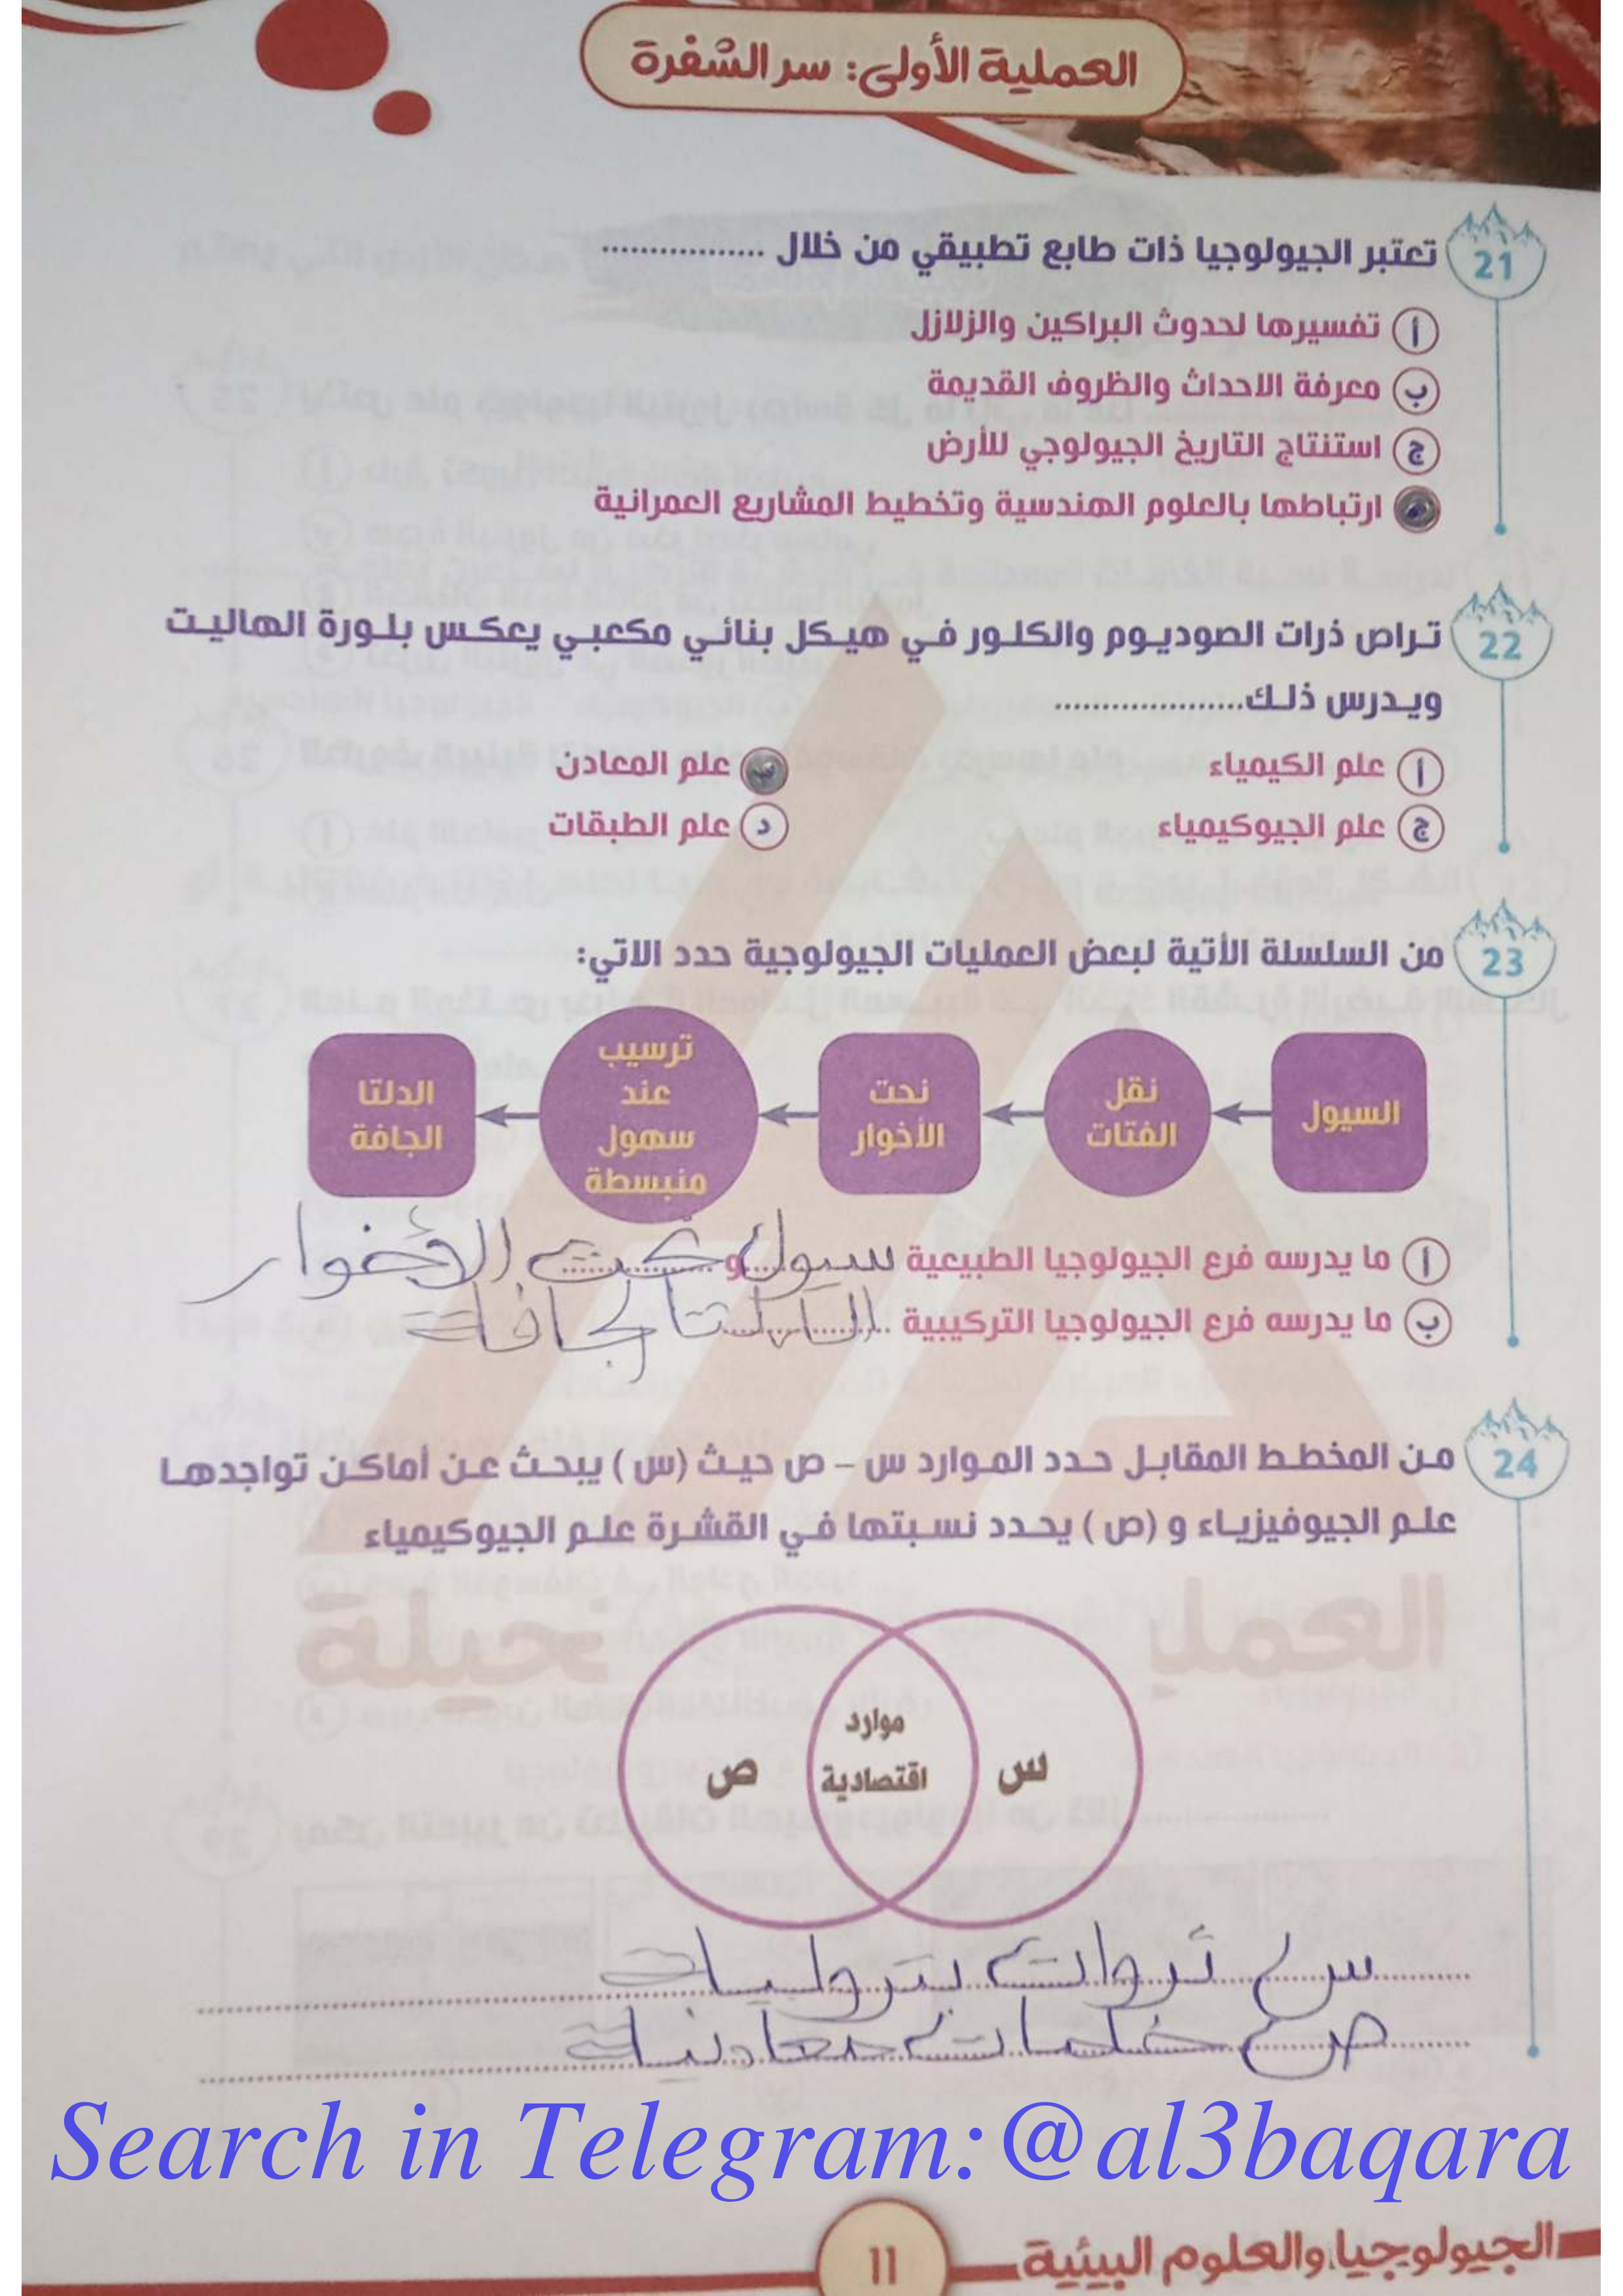 العملية الأولى: سر الشفرة
21 تعتبر الجيولوجيا ذات طابع تطبيقي من خلال .................
أ تفسيرها لحدوث البراكين والزلازل
ب معرفة الاحداث والظروف القديمة
ج استنتاج التاريخ الجيولوجي للأرض
ارتباطها بالعلوم الهندسية وتخطيط المشاريع العمرانية
22 تراص ذرات الصوديوم والكلور في هيكل بنائي مكعبي يعكس بلورة الهاليت
ويدرس ذلك....................
أ علم الكيمياء ب علم المعادن
ج علم الجيوكيمياء د علم الطبقات
23 من السلسلة الأتية لبعض العمليات الجيولوجية حدد الاتي:
السيول
نقل
الفتات
نحت
الأخوار
ترسيب
عند
سهول
منبسطة
الدلتا
الجافة
أ ما يدرسه فرع الجيولوجيا الطبيعية سيول و نحت الأخوار
ب ما يدرسه فرع الجيولوجيا التركيبية الدلتا الجافة
24 من المخطط المقابل حدد الموارد س – ص حيث (س) يبحث عن أماكن تواجدها
علم الجيوفيزياء و (ص) يحدد نسبتها في القشرة علم الجيوكيمياء
العملي نخيلة
س
موارد
اقتصادية
ص
س ثروات بترولية
ص خامات معادنية
Search in Telegram:@al3baqara
الجيولوجيا والعلوم البيئية
11